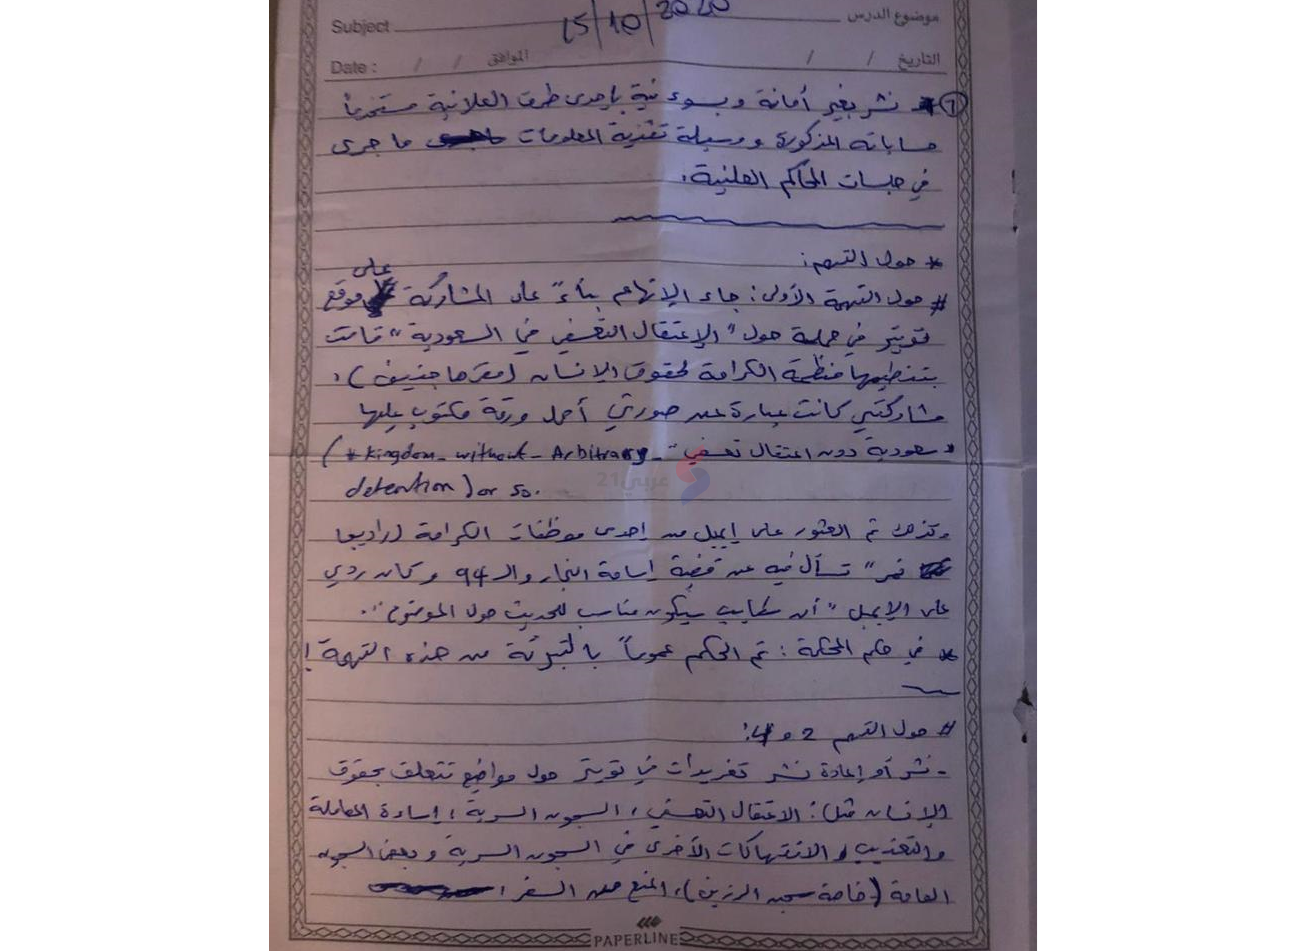 موضوع الدرس Subject
15/10/2020
التاريخ / / الموافق / / Date :
7 * نشر بغير أمانة وبسوء نية بإحدى طرق العلانية مستخدماً
حساباته المذكورة ووسيلة تقنية المعلومات ما جرى
في جلسات المحاكم العلنية.
* حول التهم:
# حول التهمة الأولى: جاء الإتهام بناءً على المشاركة على موقع
تويتر في حملة حول "الإعتقال التعسفي في السعودية" قامت
بتنظيمها منظمة الكرامة لحقوق الإنسان (مقرها جنيف).
مشاركتي كانت عبارة عن صورتي أحمل ورقة مكتوب عليها
"سعودية دون اعتقال تعسفي" (# Kingdom_without_Arbitrary_
detention) or so.
عربي21
وكذلك تم العثور على إيميل من إحدى موظفات الكرامة (راديا
نمر" تسأل فيه عن قضية إسامة النجار والـ 94 وكان ردي
على الإيميل "أن سكايب سيكون مناسب للحديث حول الموضوع".
* في حكم المحكمة: تم الحكم عموماً بالتبرئة من هذه التهمة!
# حول التهم 2 و 4:
- نشر أو إعادة نشر تغريدات في تويتر حول مواضيع تتعلق بحقوق
الإنسان مثل: الاعتقال التعسفي، السجون السرية، إساءة المعاملة
والتعذيب والانتهاكات الأخرى في السجون السرية وبعض السجون
العامة (خاصة سجن الرزين)، المنع من السفر،
PAPERLINE